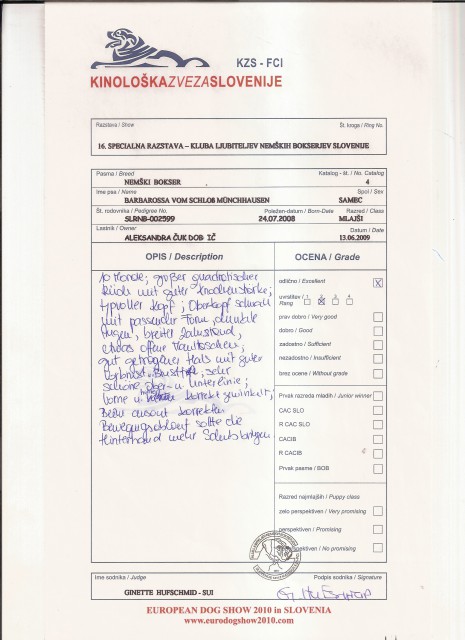 KZS - FCI
KINOLOŠKAZVEZASLOVENIJE
Razstava / Show Št. kroga / Ring No.
16. SPECIALNA RAZSTAVA – KLUBA LJUBITELJEV NEMŠKIH BOKSERJEV SLOVENIJE
Pasma / Breed Katalog - št. / No. Catalog
NEMŠKI BOKSER 4
Ime psa / Name Spol / Sex
BARBAROSSA VOM SCHLOß MÜNCHHAUSEN SAMEC
Št. rodovnika / Pedigree No. Poležen-datum / Born-Date Razred / Class
SLRNB-002599 24.07.2008 MLAJŠI
Lastnik / Owner Datum / Date
ALEKSANDRA ČUK DOB IČ 13.06.2009
OPIS / Description OCENA / Grade
10 Monde; großer quadratischer
Rüde mit guter Knochenstärke;
typvoller Kopf; Oberkopf schmal
mit passender Form dunkle
Augen, breiter Zahnstand,
etwas offene
gut getragener Hals mit guter
Vorbrust, sehr
schöne Ober- u. Unterlinie;
vorne u. korrekt gewinkelt;
Beim ansonst korrekten
Bewegungsablauf sollte die
Hinterhand mehr Schub bringen.
odlično / Excellent X
uvrstitev / Rang 1 2 3 4
prav dobro / Very good
dobro / Good
zadostno / Sufficient
nezadostno / Insufficient
brez ocene / Without grade
Prvak razreda mladih / Junior winner
CAC SLO
R CAC SLO
CACIB
R CACIB
Prvak pasme / BOB
Razred najmlajših / Puppy class
zelo perspektiven / Very promising
perspektiven / Promising
perspektiven / No promising
Ime sodnika / Judge Podpis sodnika / Signature
GINETTE HUFSCHMID - SUI
EUROPEAN DOG SHOW 2010 in SLOVENIA
www.eurodogshow2010.com